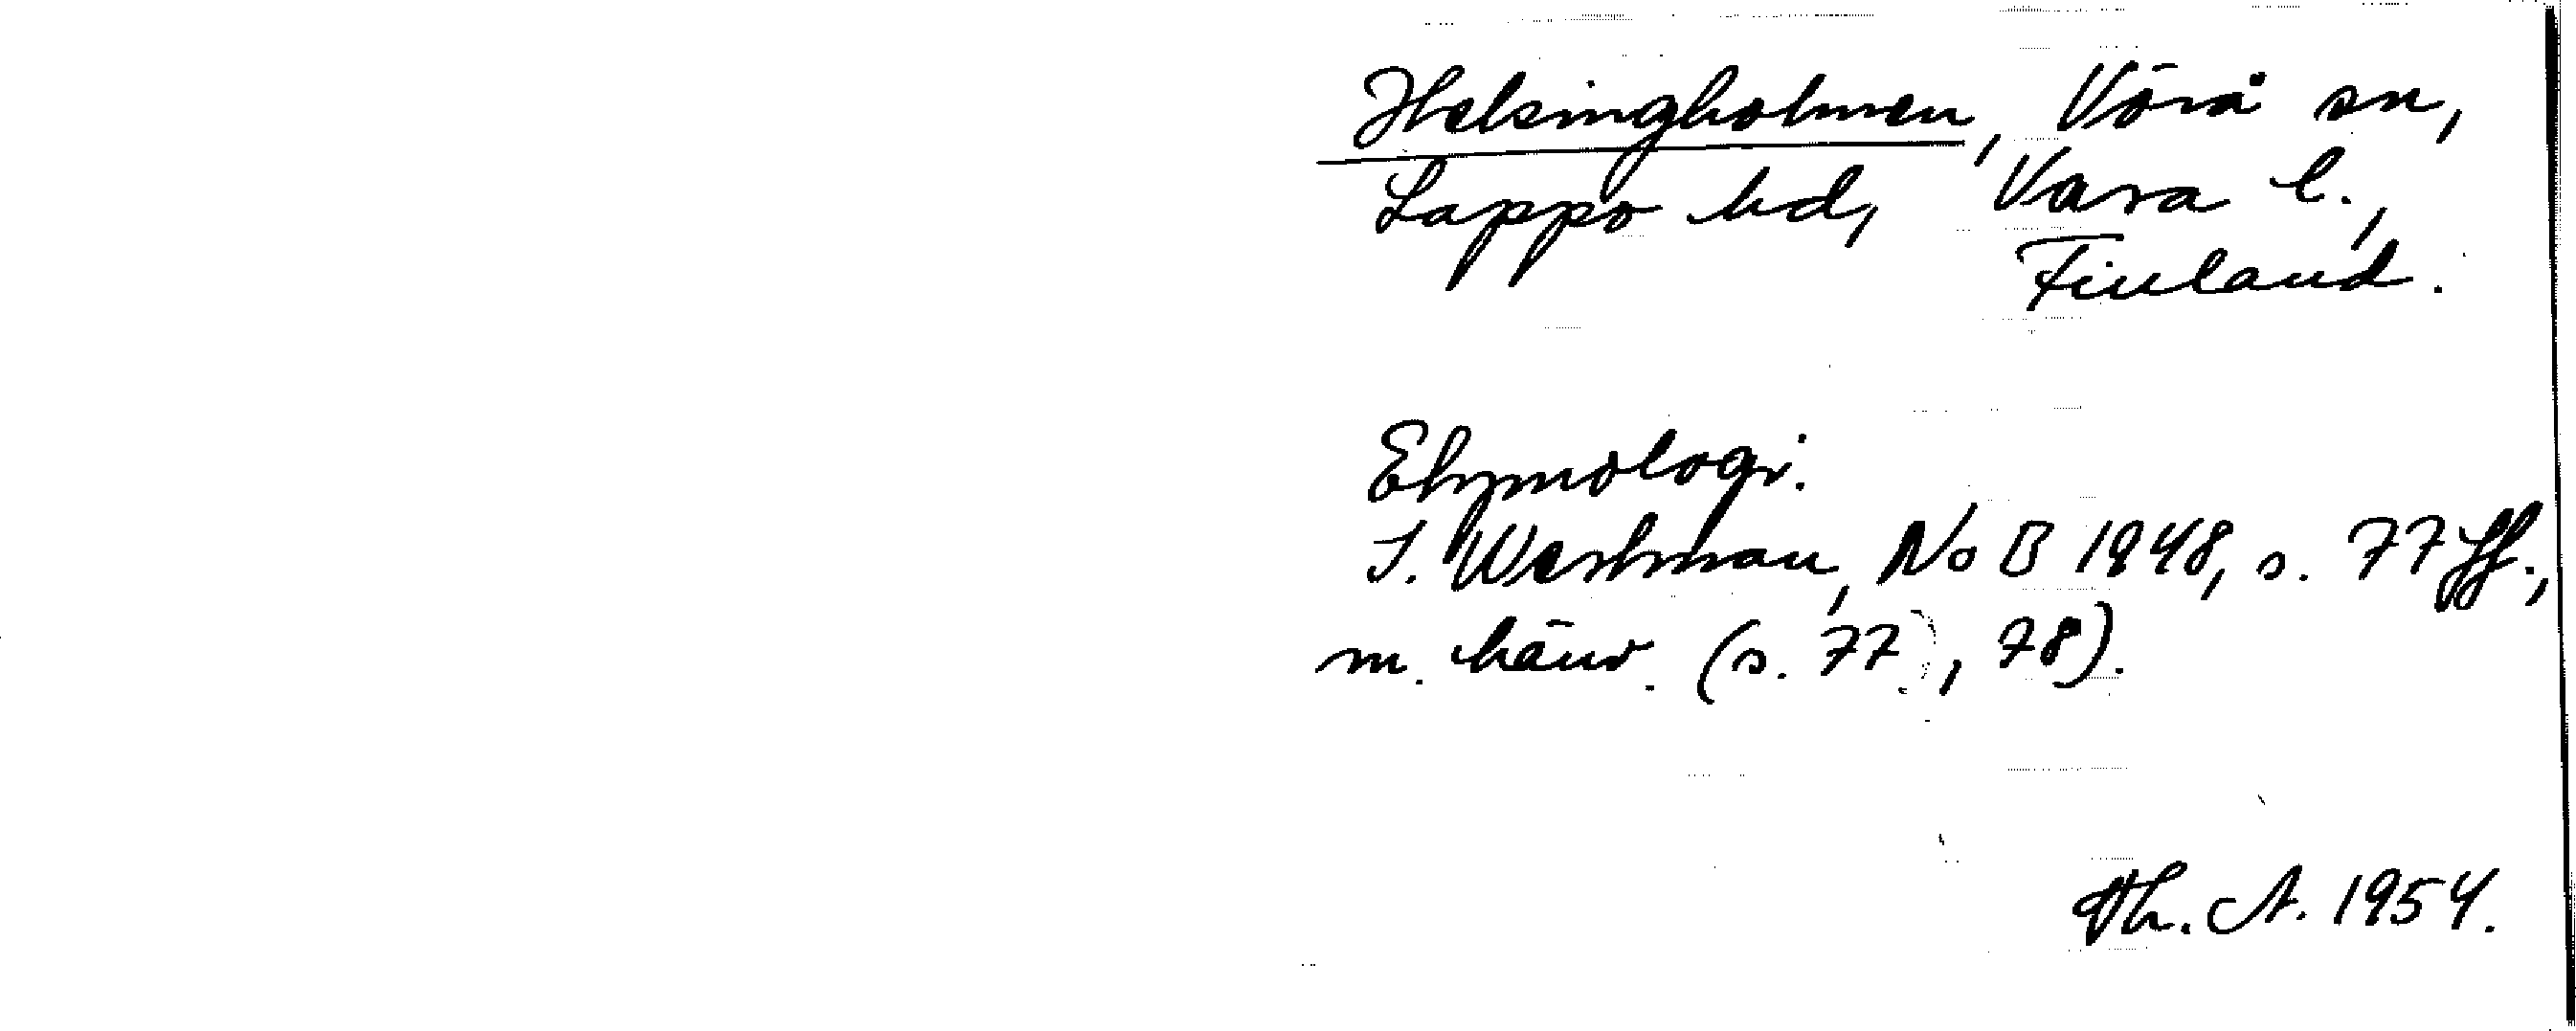 Helsingholmen, Vörå sn,
Lappo hd, Vasa l.,
Finland.
Etymologi.
I. Westman, NoB 1948, s. 77 ff.,
m. hänv. (s. 77, 78).
Th. A. 1954.